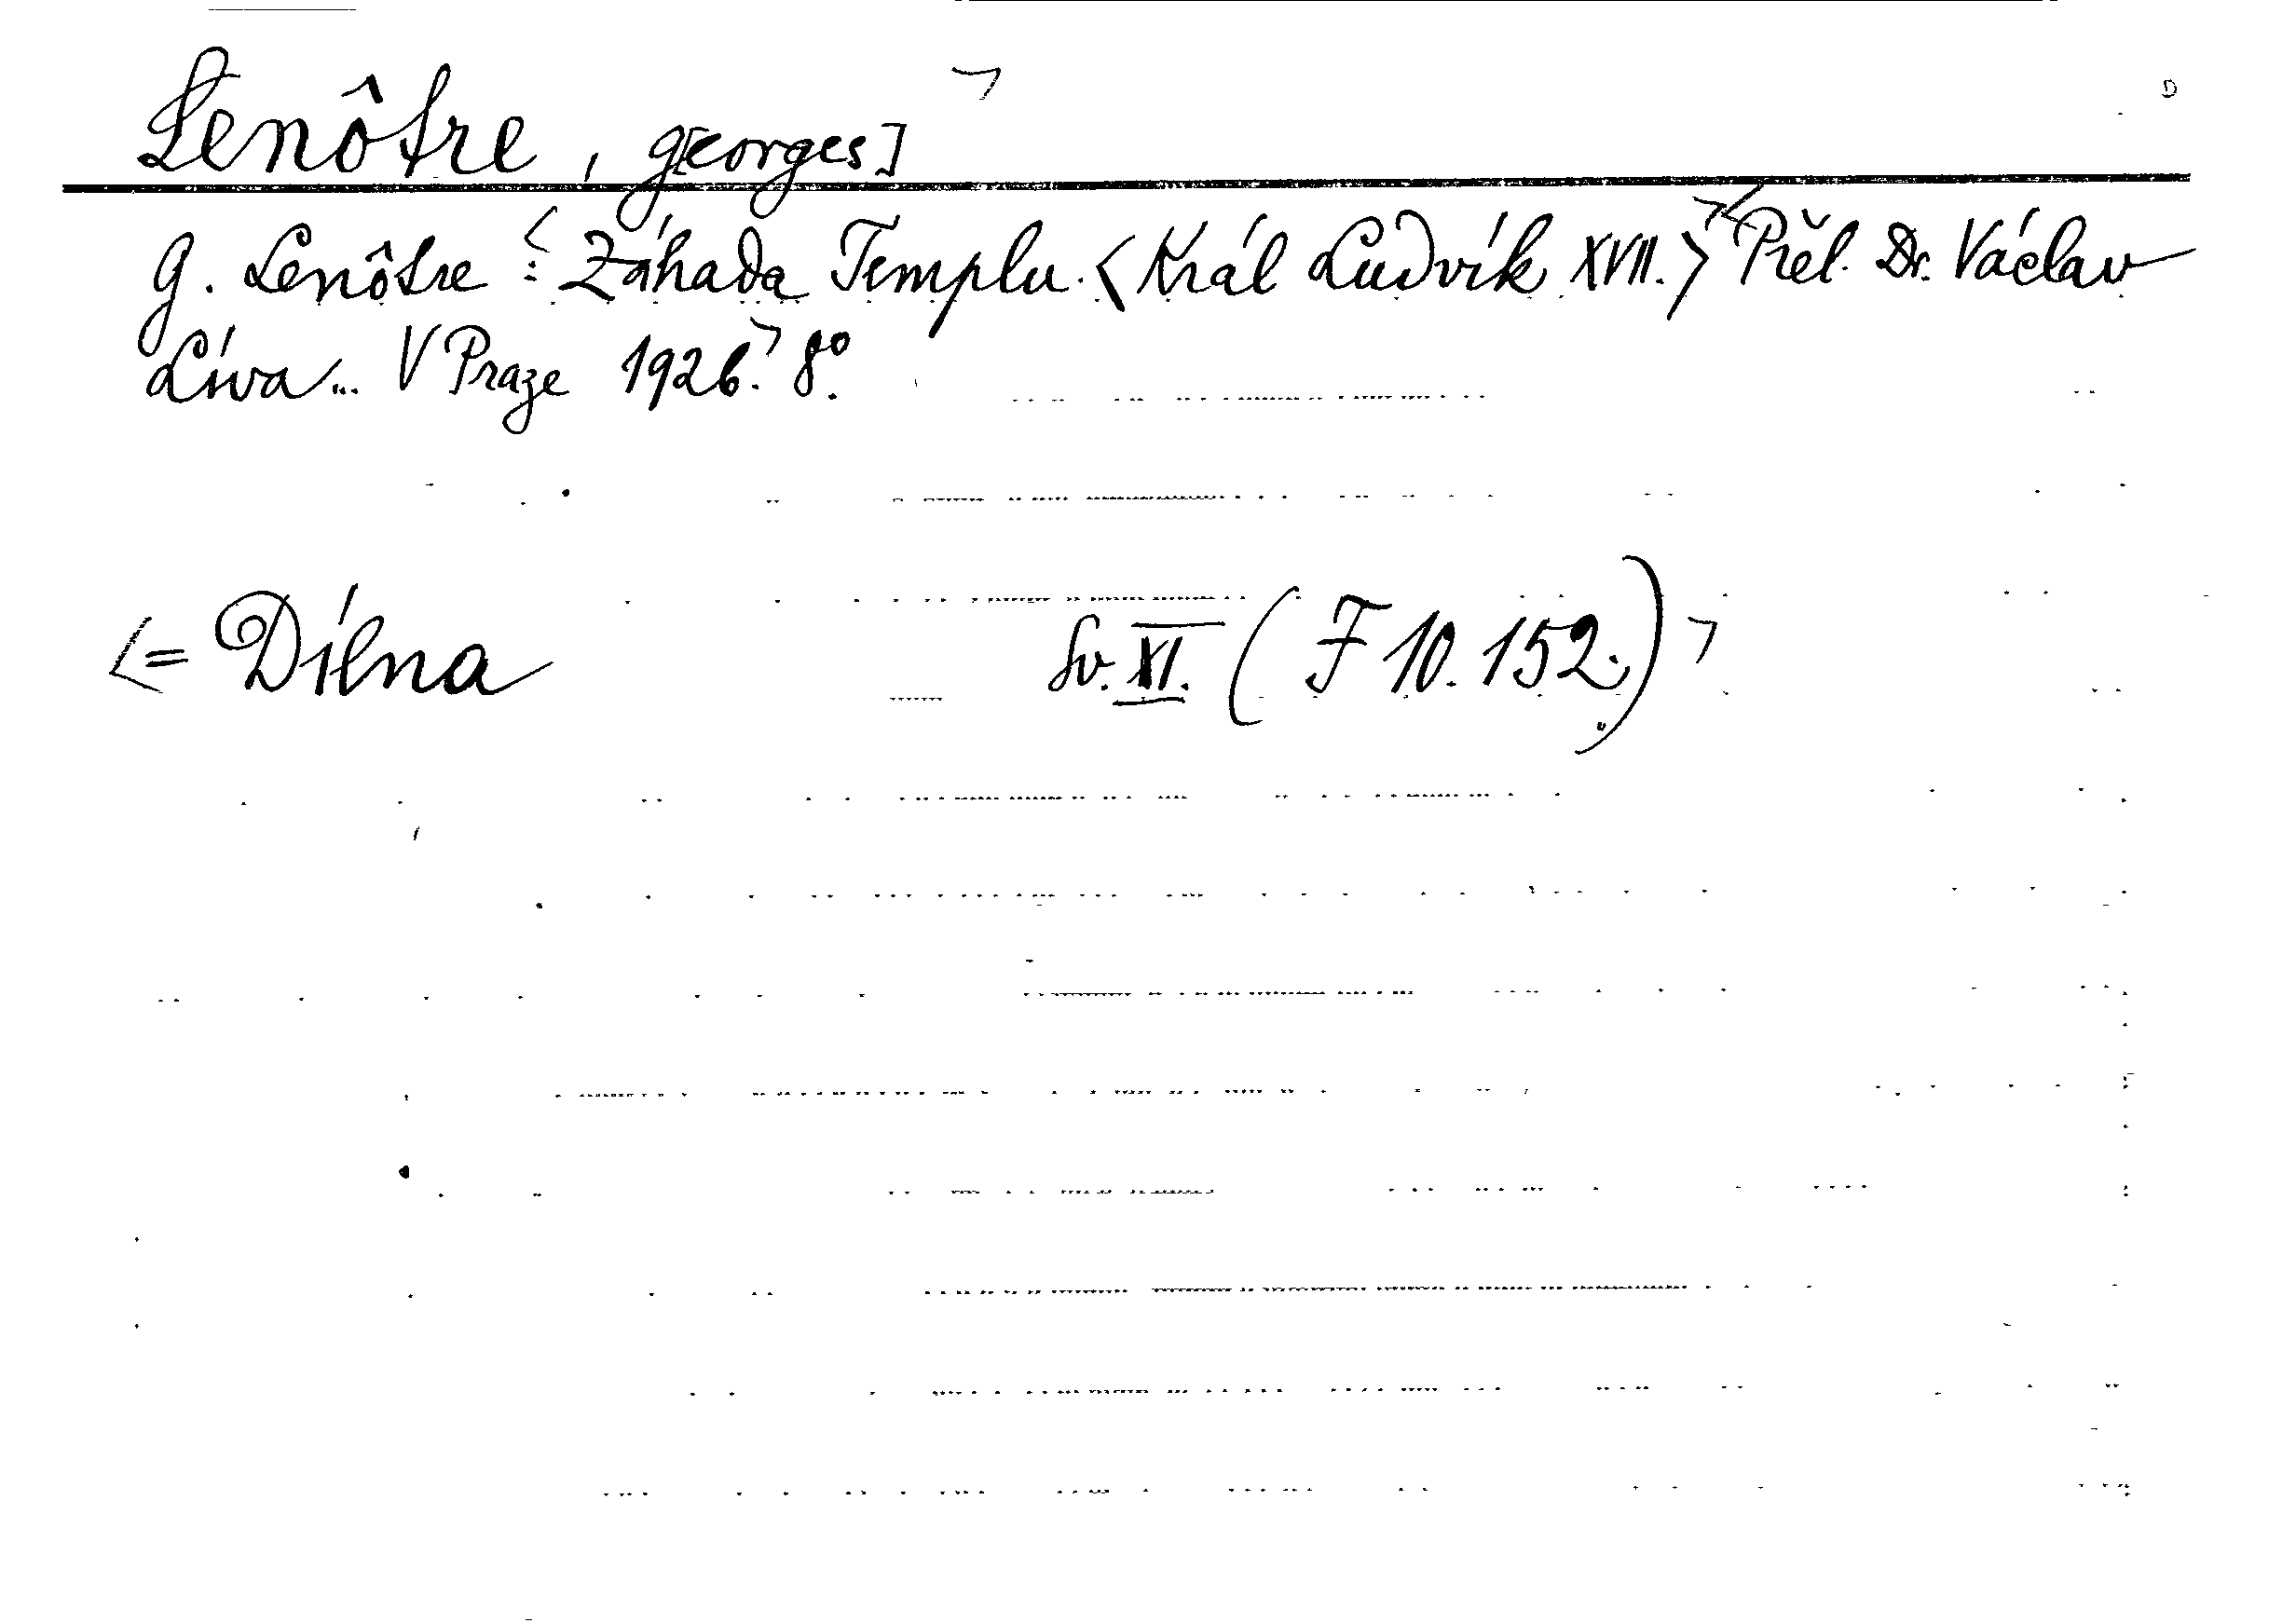 Lenôtre, G[eorges]
G. Lenôtre: Záhada Templu. <Král Ludvík XVII.> Přel. Dr. Václav
Líva... V Praze 1926. 8°.
<= Dílna Sv. XI. (F 10.152.)>